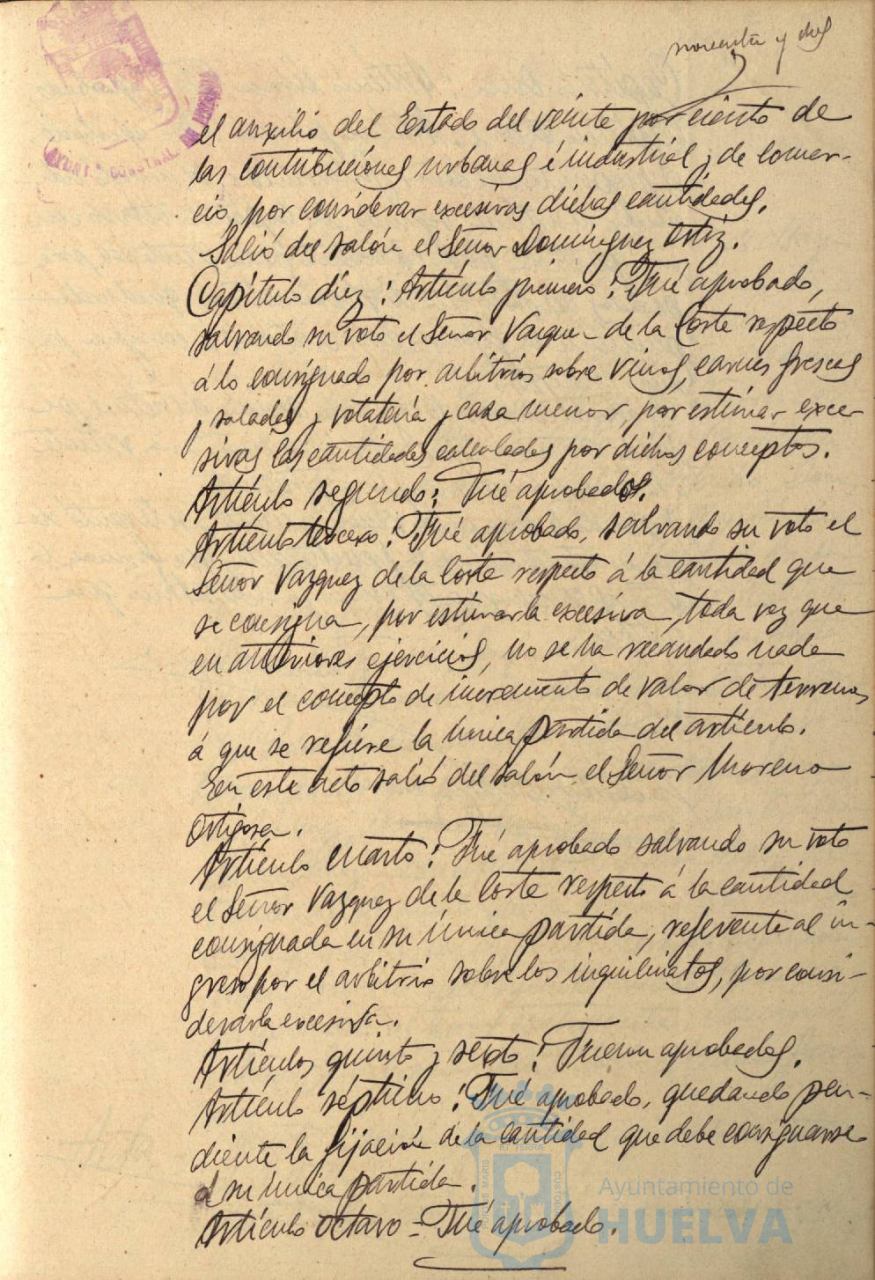 noventa y dos
AYUNT.º CONSTNAL.
el auxilio del Estado del veinte por ciento de
las contribuciones urbanas é industrial y de comer-
cio, por considerar excesivas dichas cantidades.
Salió del salón el Señor Domínguez Ortiz.
Capítulo diez: Artículo primero: Fué aprobado,
salvando su voto el Señor Vazquez de la Corte respecto
á lo consignado por arbitrios sobre vinos, carnes frescas
y saladas y volatería y caza menor, por estimar exce-
sivas las cantidades calculadas por dichos conceptos.
Artículo segundo: Fué aprobado.
Artículo tercero: Fué aprobado, salvando su voto el
Señor Vazquez de la Corte respecto á la cantidad que
se consigna, por estimarla excesiva, toda vez que
en anteriores ejercicios, no se ha recaudado nada
por el concepto de incremento de valor de terrenos
á que se refiere la única partida del artículo.
En este acto salió del salón el Señor Moreno
Ortigosa.
Artículo cuarto: Fué aprobado salvando su voto
el Señor Vazquez de la Corte respecto á la cantidad
consignada en su única partida, referente al in-
greso por el arbitrio sobre los inquilinatos, por consi-
derarla excesiva.
Artículos quinto y sexto: Fueron aprobados.
Artículo séptimo: Fué aprobado, quedando pen-
diente la fijación de la cantidad que debe consignarse
á su única partida.
Artículo octavo = Fué aprobado.
Ayuntamiento de
HUELVA